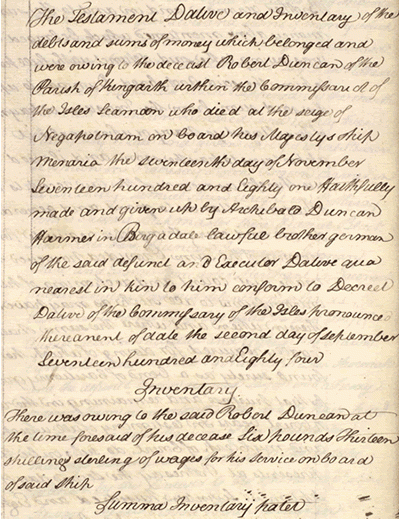 The Testament Dative and Inventory of the
debts and sums of money which belonged and
were owing to the deceast Robert Duncan of the
Parish of Kengarth within the Commissariot of
the Isles Seaman who died at the seige of
Negapotnam on board his Majestys ship
Menaria the seventeenth day of November
Seventeen hundred and Eighty one Faithfully
made and given up by Archibald Duncan
Farmer in Bragadale lawful brother german
of the said defunct and Executor Dative qua
nearest in kin to him conform to Decreet
Dative of the Commissary of the Isles pronounce
thereanent of date the second day of September
Seventeen hundred and Eighty four
Inventary
There was owing to the said Robert Duncan at
the time foresaid of his decease Six pounds Thirteen
shillings sterling of wages for his service on board
of said ship
Summa Inventary patet